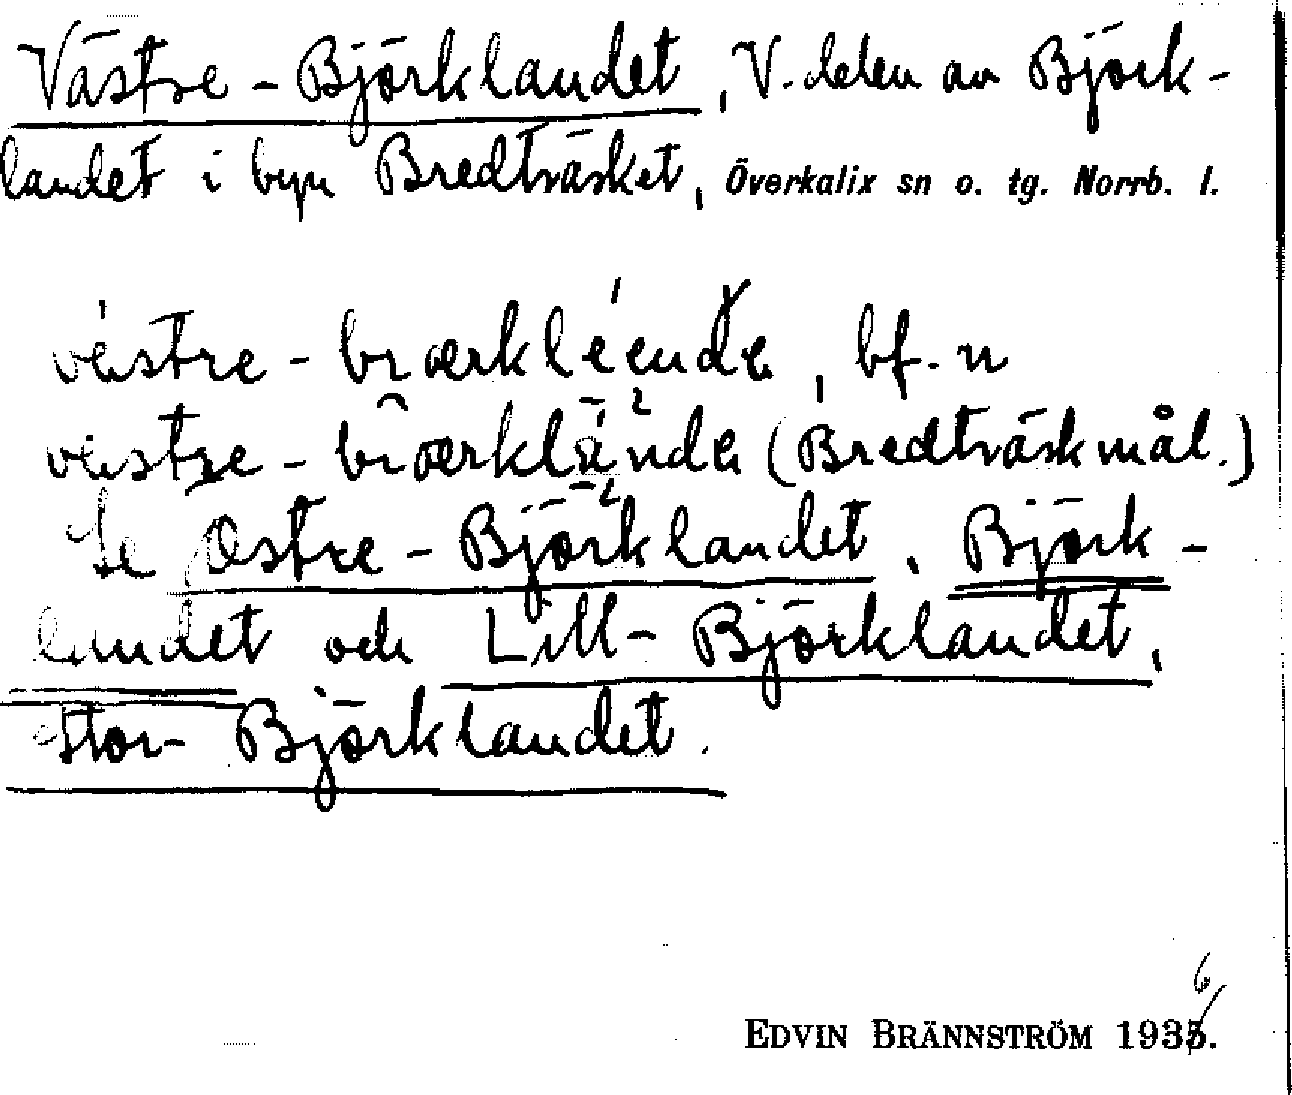 Västre-Björklandet, V. delen av Björk-
landet i byn Bredträsket, Överkalix sn o. tg. Norrb. l.
bf. n
(Bredträskmål.)
Se Östre-Björklandet, Björk-
landet och Lill-Björklandet,
Stor-Björklandet.
6
EDVIN BRÄNNSTRÖM 1935.